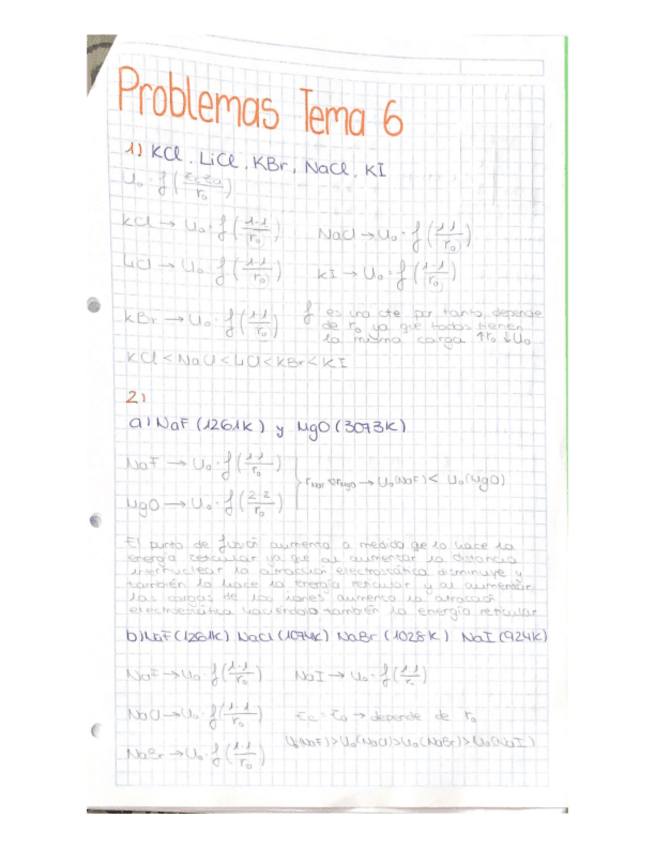 Problemas Tema 6
1) KCl, LiCl, KBr, NaCl, KI
U₀ · f(zcza/r₀)
KCl → U₀ · f(1·1/r₀) NaCl → U₀ · f(1·1/r₀)
LiCl → U₀ · f(1·1/r₀) KI → U₀ · f(1·1/r₀)
KBr → U₀ · f(1·1/r₀) f es una cte por tanto, depende
de r₀ ya que todos tienen
la misma carga ↑r₀ ↓U₀
KCl < NaCl < LiCl < KBr < KI
2)
a) NaF (1261K) y MgO (3073K)
NaF → U₀ · f(1·1/r₀)
MgO → U₀ · f(2·2/r₀)
→ U₀(NaF) < U₀(MgO)
El punto de fusión aumenta a medida que lo hace la
energía reticular ya que al aumentar la distancia
internuclear la atracción electrostática disminuye y
también lo hace la energía reticular y al aumentar
las cargas de los iones aumenta la atracción
electrostática haciéndolo también la energía reticular
b) NaF (1261K) NaCl (1074K) NaBr (1028K) NaI (924K)
NaF → U₀ · f(1·1/r₀) NaI → U₀ · f(1·1/r₀)
NaCl → U₀ · f(1·1/r₀) → depende de r₀
NaBr → U₀ · f(1·1/r₀) U₀(NaF) > U₀(NaCl) > U₀(NaBr) > U₀(NaI)